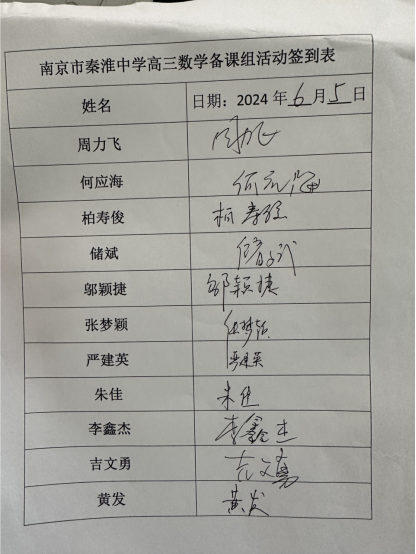 南京市秦淮中学高三数学备课组活动签到表
姓名 日期：2024年6月5日
周力飞 周力飞
何应海 何应海
柏寿俊 柏寿俊
储斌 储斌
邬颖捷 邬颖捷
张梦颖 张梦颖
严建英 严建英
朱佳 朱佳
李鑫杰 李鑫杰
吉文勇 吉文勇
黄发 黄发